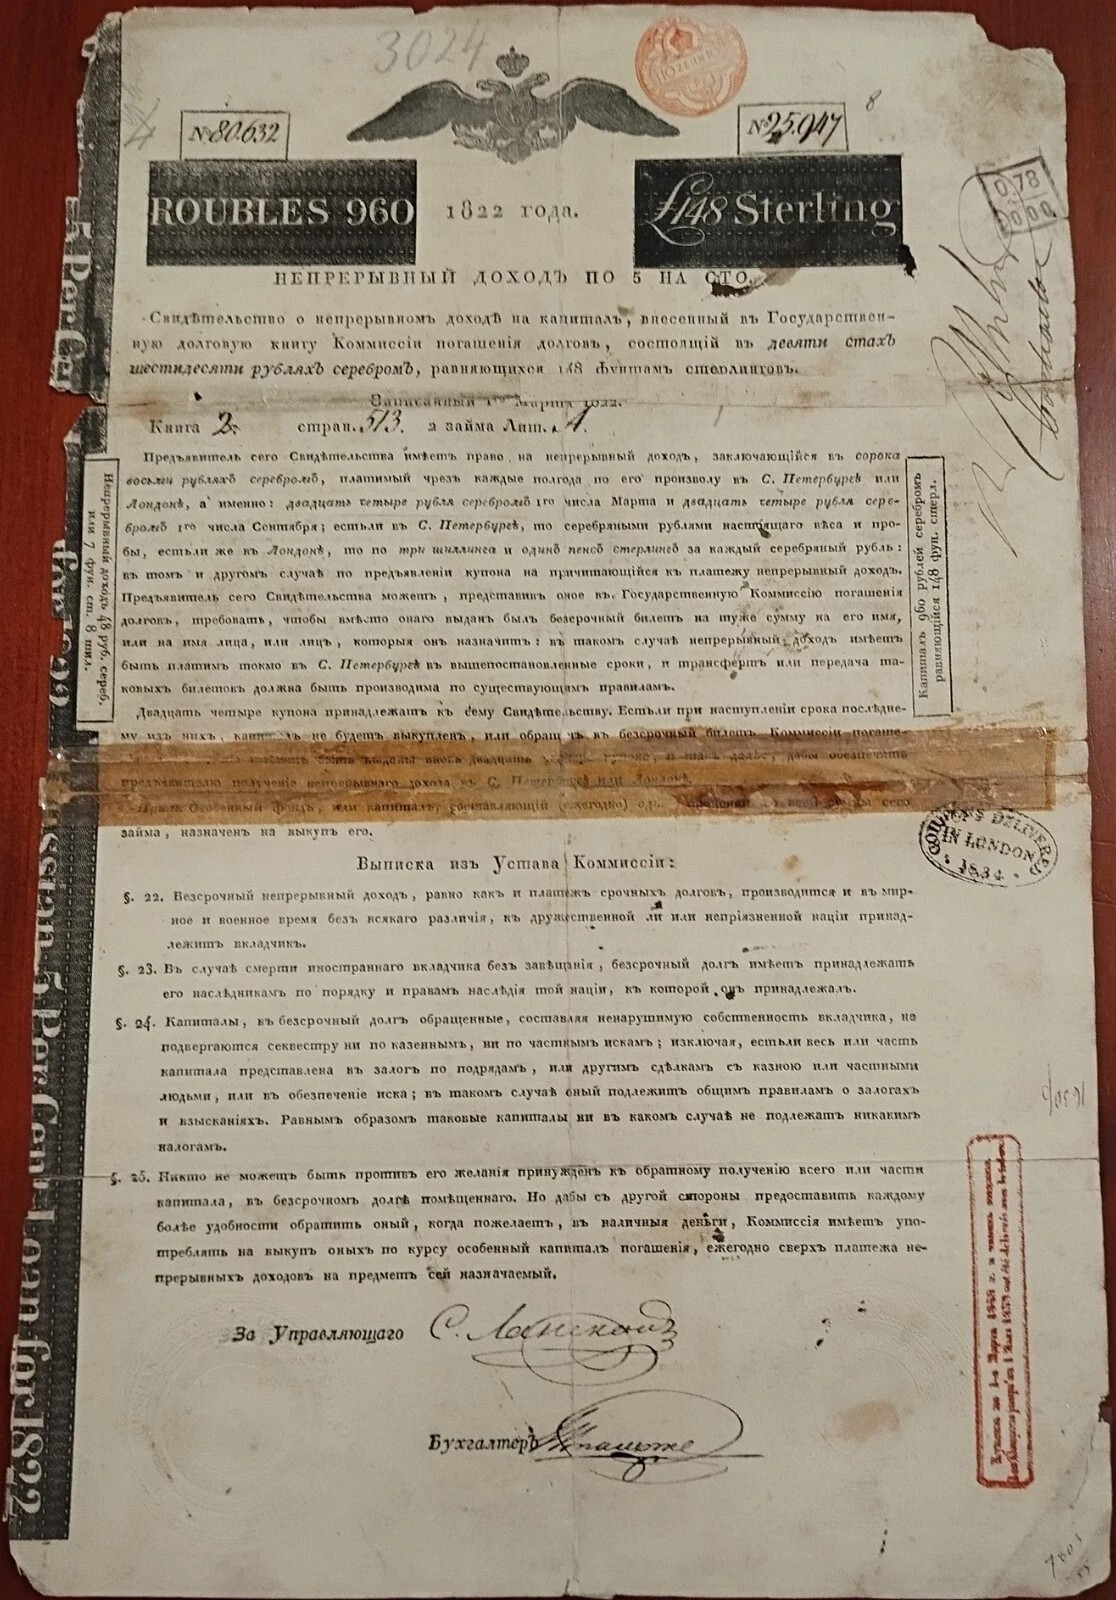 3024
№ 80.632
№ 25.947
8
ROUBLES 960
1822 года.
£148 Sterling
0,78
00 00
НЕПРЕРЫВНЫЙ ДОХОДЪ ПО 5 НА СТО.
Свидѣтельство о непрерывномъ доходѣ на капиталъ, внесенный въ Государствен-
ную долговую книгу Коммиссіи погашенія долговъ, состоящій въ девяти стахъ
шестидесяти рубляхъ серебромъ, равняющихся 148 фунтамъ стерлинговъ.
Записанный 1го Марта 1822.
Книга 2. стран. 513. 2 займа Лит. А.
Предъявитель сего Свидѣтельства имѣетъ право на непрерывный доходъ, заключающійся въ сорока
восьми рубляхъ серебромъ, платимый чрезъ каждые полгода по его произволу въ С. Петербургѣ или
Лондонѣ, а именно: двадцать четыре рубля серебромъ 1го числа Марта и двадцать четыре рубля сере-
бромъ 1го числа Сентября; естьли въ С. Петербургѣ, то серебряными рублями настоящаго вѣса и про-
бы, естьли же въ Лондонѣ, то по три шиллинга и одинъ пенсъ стерлингъ за каждый серебряный рубль:
въ томъ и другомъ случаѣ по предъявленіи купона на причитающійся къ платежу непрерывный доходъ.
Предъявитель сего Свидѣтельства можетъ, представивъ оное въ Государственную Коммиссію погашенія
долговъ, требовать, чтобы вмѣсто онаго выданъ былъ безсрочный билетъ на туже сумму на его имя,
или на имя лица, или лицъ, которыя онъ назначитъ: въ такомъ случаѣ непрерывный доходъ имѣетъ
быть платимъ токмо въ С. Петербургѣ въ вышепостановленные сроки, и трансфертъ или передача та-
ковыхъ билетовъ должна быть производима по существующимъ правиламъ.
Двадцать четыре купона принадлежатъ къ сему Свидѣтельству. Естьли при наступленіи срока послѣдне-
му изъ нихъ, капиталъ не будетъ выкупленъ, или обращенъ въ безсрочный билетъ Коммиссіи погаше-
имѣютъ быть выданы вновь двадцать купона, и такъ далѣе, дабы обезпечить
предъявителю полученіе непрерывнаго дохода въ С. Петербургѣ или Лондонѣ.
Прим. Особенный фондъ, или капиталъ, составляющій (ежегодно) всей суммы сего
займа, назначенъ на выкупъ его.
Непрерывный доходъ 48 руб. сереб.
или 7 фун. ст. 8 шил.
Капиталъ 960 рублей серебромъ
равняющійся 148 фун. стерл.
COUPONS DELIVERED
IN LONDON
1834
Выписка изъ Устава Коммиссіи:
§. 22. Безсрочный непрерывный доходъ, равно какъ и платежъ срочныхъ долговъ, производится и въ мир-
ное и военное время безъ всякаго различія, къ дружественной ли или непріязненной націи принад-
лежитъ вкладчикъ.
§. 23. Въ случаѣ смерти иностраннаго вкладчика безъ завѣщанія, безсрочный долгъ имѣетъ принадлежать
его наслѣдникамъ по порядку и правамъ наслѣдія той націи, къ которой онъ принадлежалъ.
§. 24. Капиталы, въ безсрочный долгъ обращенные, составляя ненарушимую собственность вкладчика, не
подвергаются секвестру ни по казеннымъ, ни по частнымъ искамъ; изключая, естьли весь или часть
капитала представлена въ залогъ по подрядамъ, или другимъ сдѣлкамъ съ казною или частными
людьми, или въ обезпеченіе иска; въ такомъ случаѣ оный подлежитъ общимъ правиламъ о залогахъ
и взысканіяхъ. Равнымъ образомъ таковые капиталы ни въ какомъ случаѣ не подлежатъ никакимъ
налогамъ.
§. 25. Никто не можетъ быть противъ его желанія принужденъ къ обратному полученію всего или части
капитала, въ безсрочномъ долгѣ помѣщеннаго. Но дабы съ другой стороны предоставить каждому
болѣе удобности обратить оный, когда пожелаетъ, въ наличныя деньги, Коммиссія имѣетъ упо-
треблять на выкупъ оныхъ по курсу особенный капиталъ погашенія, ежегодно сверхъ платежа не-
прерывныхъ доходовъ на предметъ сей назначаемый.
За Управляющаго С. Ланской
Бухгалтеръ
Russian 5 Per Cent Loan for 1822